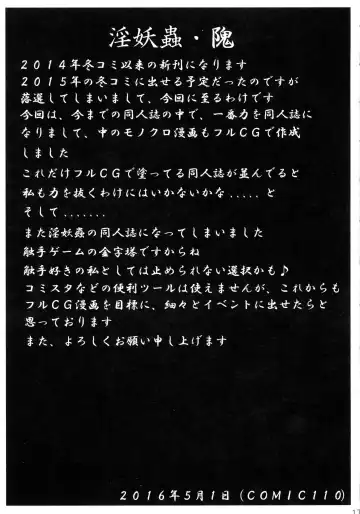 淫妖蟲・隗
2014年冬コミ以来の新刊になります
2015年の冬コミに出せる予定だったのですが
落選してしまいまして、今回に至るわけです
今回は、今までの同人誌の中で、一番力を同人誌に
なりまして、中のモノクロ漫画もフルCGで作成
しました
これだけフルCGで塗ってる同人誌が並んでると
私も力を抜くわけにはいかないかな.....と
そして.......
また淫妖蟲の同人誌になってしまいました
触手ゲームの金字塔ですからね
触手好きの私としては止められない選択かも♪
コミスタなどの便利ツールは使えませんが、これからも
フルCG漫画を目標に、細々とイベントに出せたらと
思っております
また、よろしくお願い申し上げます
2016年5月1日(COMIC110)